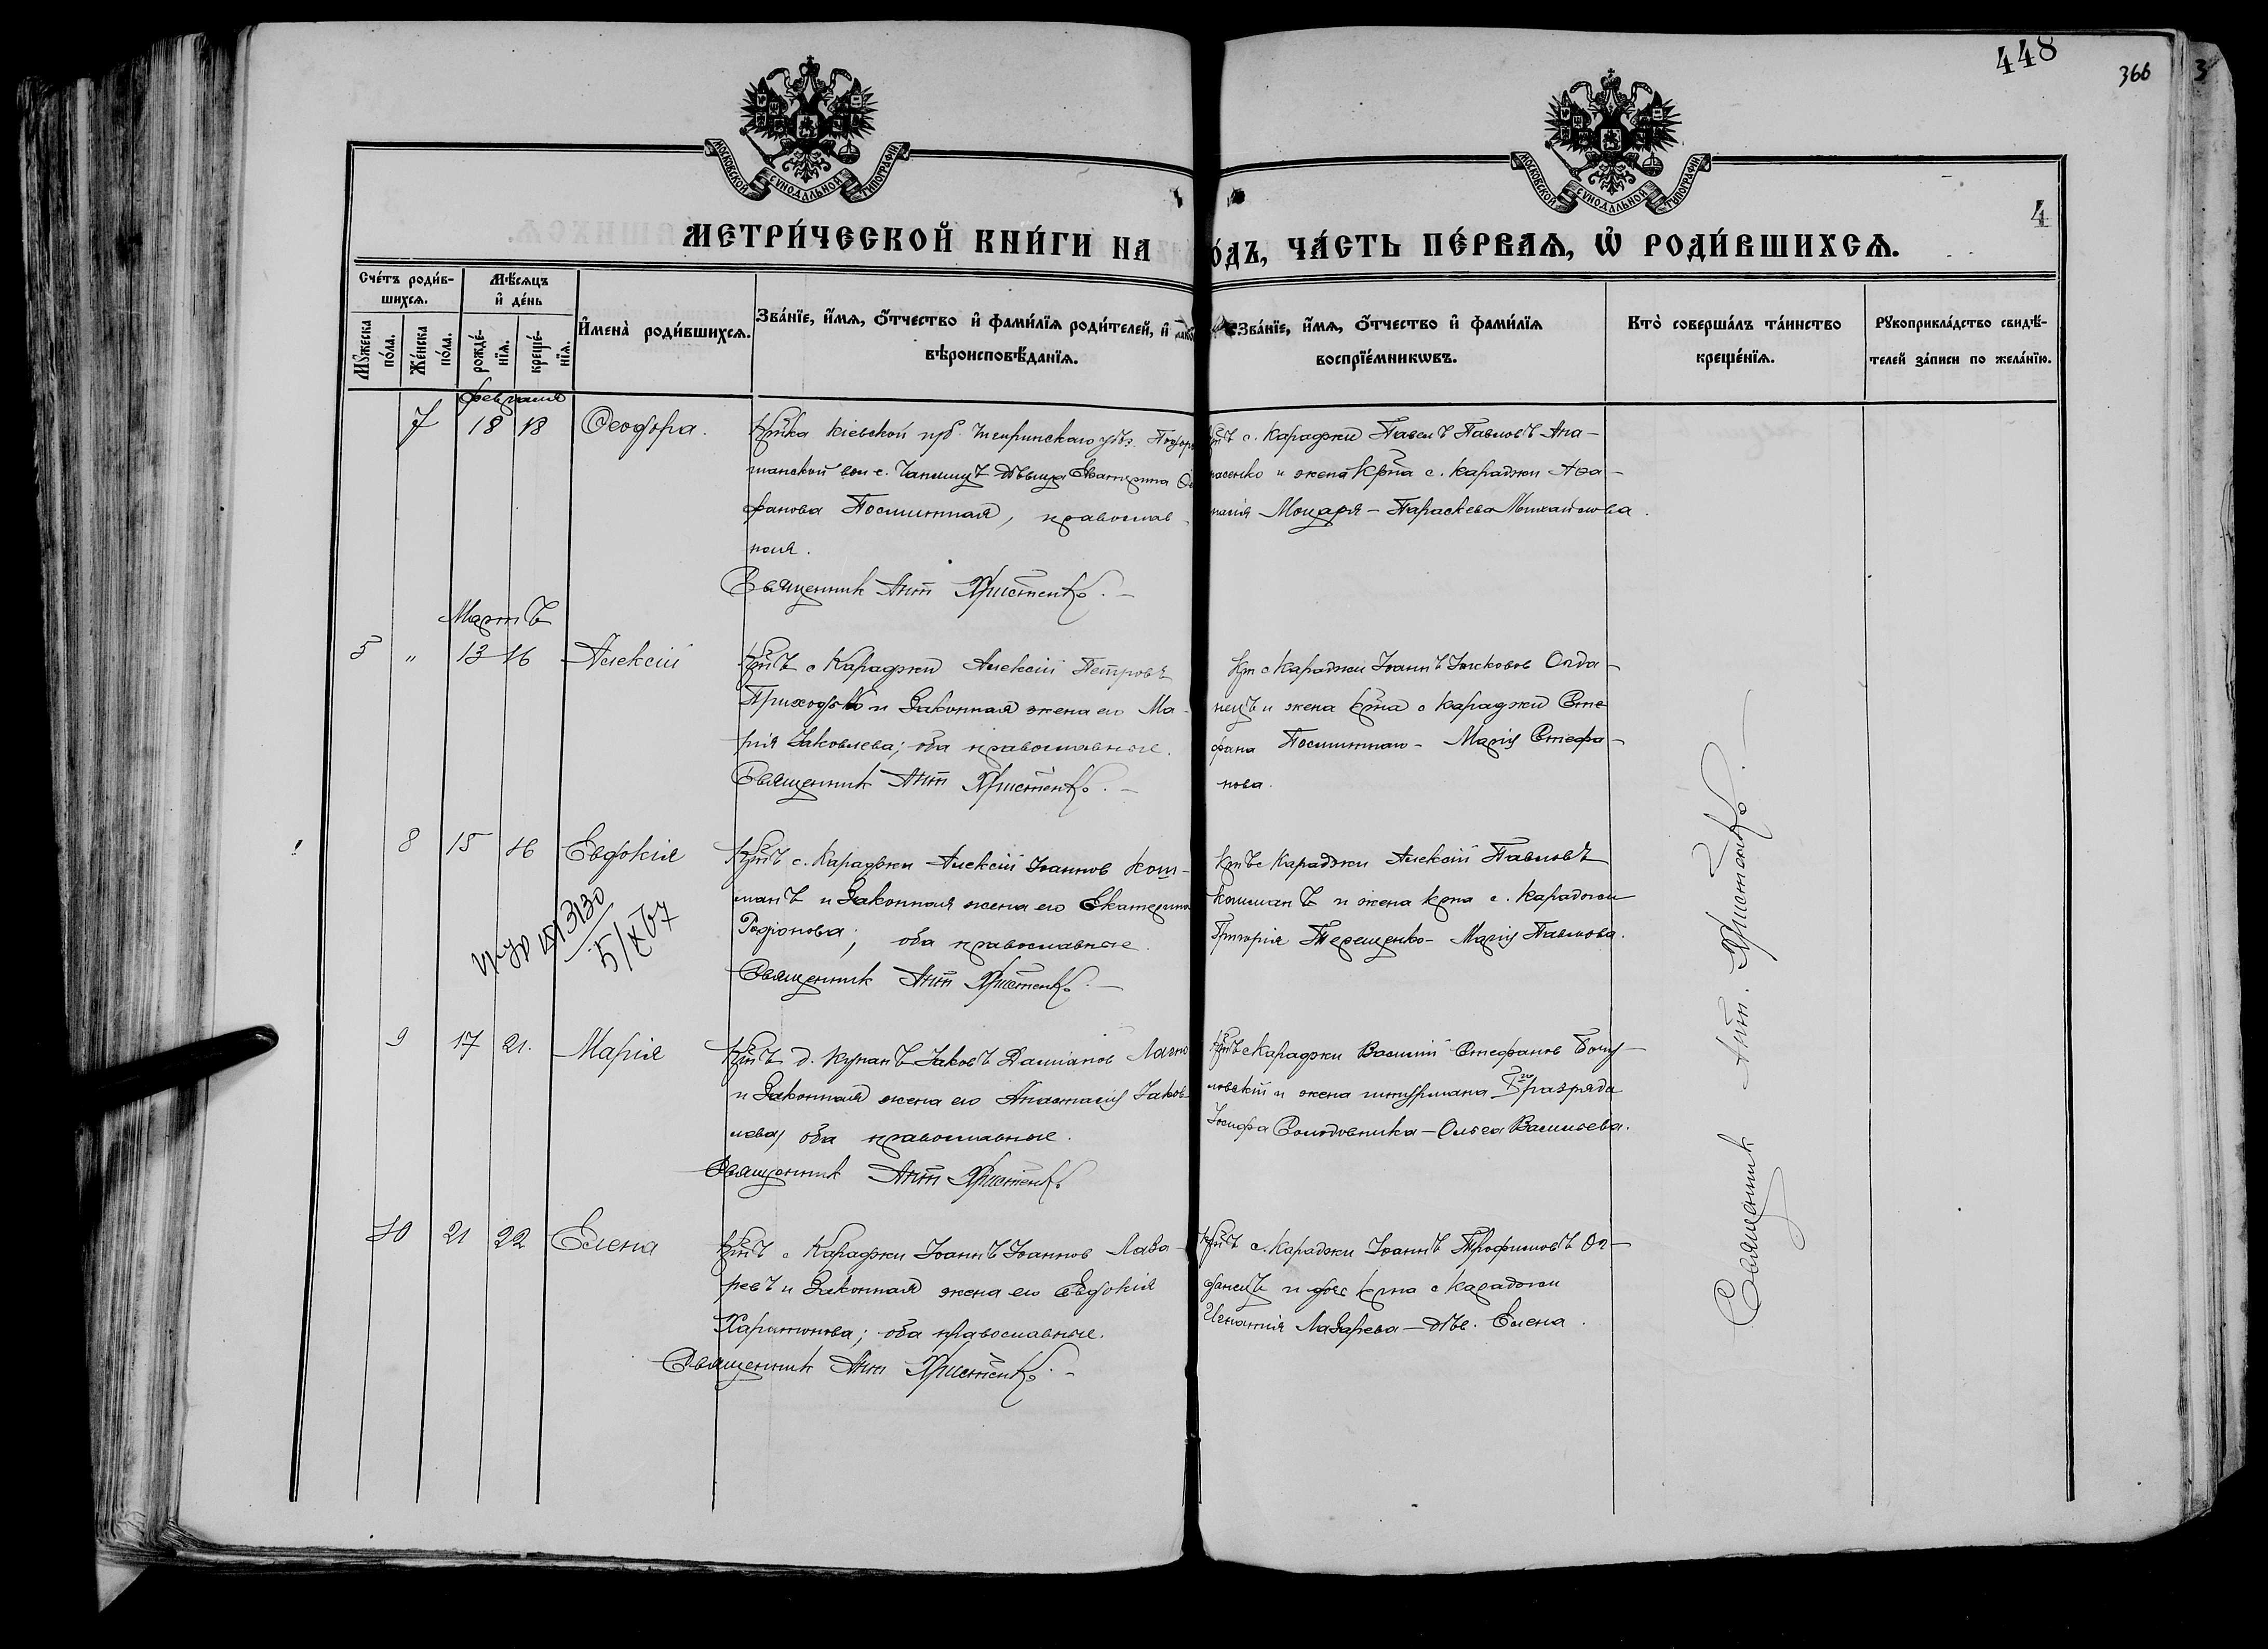 448
366
3
МОСКОВСКОЙ СУНОДАЛЬНОЙ ТИПОГРАФІИ
МОСКОВСКОЙ СУНОДАЛЬНОЙ ТИПОГРАФІИ
4
МЕТРИ́ЧЕСКОЙ КНИ́ГИ НА
О́ДЪ, ЧА́СТЬ ПЕ́РВАѦ, Ѡ҆ РОДИ́ВШИХСѦ.
Сче́тъ роди́в-
шихсѧ.
Мꙋ́жеска по́ла.
Же́нска по́ла.
Мѣ́сѧцъ
и҆ де́нь
рожде́-
нїѧ.
креще́-
нїѧ.
И҆мена̀ роди́вшихсѧ.
Зва́нїе, и҆́мѧ, ѻ҆́тчество и҆ фами́лїѧ роди́телей, и҆
вѣроисповѣ́данїѧ.
Зва́нїе, и҆́мѧ, ѻ҆́тчество и҆ фами́лїѧ
воспрїе́мникѡвъ.
Кто̀ соверша́лъ та́инство
креще́нїѧ.
Рꙋкоприкла́дство свидѣ́-
телей за́писи по жела́нїю.
Февраля
7 18 18 Ѳеодора.
Кртка Кіевской губ.
шанской вол. с. дѣвица Екатерина
фанова Посмитная, православ-
ная.
Священник Ант Христенко.
Крт с. Караджи Павелъ Павловъ Апа-
насенко и жена Крта с. Караджи Аѳа-
насія Моцаря - Параскева Михайлова.
Мартъ
5 " 13 16 Алексій
Кртъ с Караджи Алексій Петровъ
Приходько и Законная жена его Ма-
рія Яковлева; оба православные.
Священник Ант Христенко.
Крт с Караджи Іоаннъ Онда-
нецъ и жена Крта с Караджи Сте-
фана Посмитнаго - Марія Стефа-
нова.
8 15 16 Евдокія
Кртъ с. Караджи Алексій Іоаннов Кош-
манъ и Законная жена его Екатерина
Родіонова; оба православные.
Священник Ант Христенко.
Кртъ с Караджи Алексій Павловъ
Кошманъ и жена Крта с. Караджи
Григорія Терещенко - Марія Павлова.
3130
5/IX 67
9 17 21. Марія
Кртъ д. Кунанъ Іаковъ Даміанов
и Законная жена его Анастасія Іаков-
лева, оба православные.
Священник Ант Христенко
Кртъ с Караджи Василій Стефанов
ловскій и жена штурмана разряда
Іосифа Солодовника - Ольга Васильева.
10 21 22 Елена
Кртъ с Караджи Іоаннъ Іоаннов Лаза-
ревъ и Законная жена его Евдокія
Харитонова; оба православные.
Священник Ант Христенко.
Кртъ с. Караджи Іоаннъ Трофимовъ Он-
данецъ и дочь Крта с Караджи
Игнатія Лазарева - дѣв. Елена.
Священник Ант. Христенко.